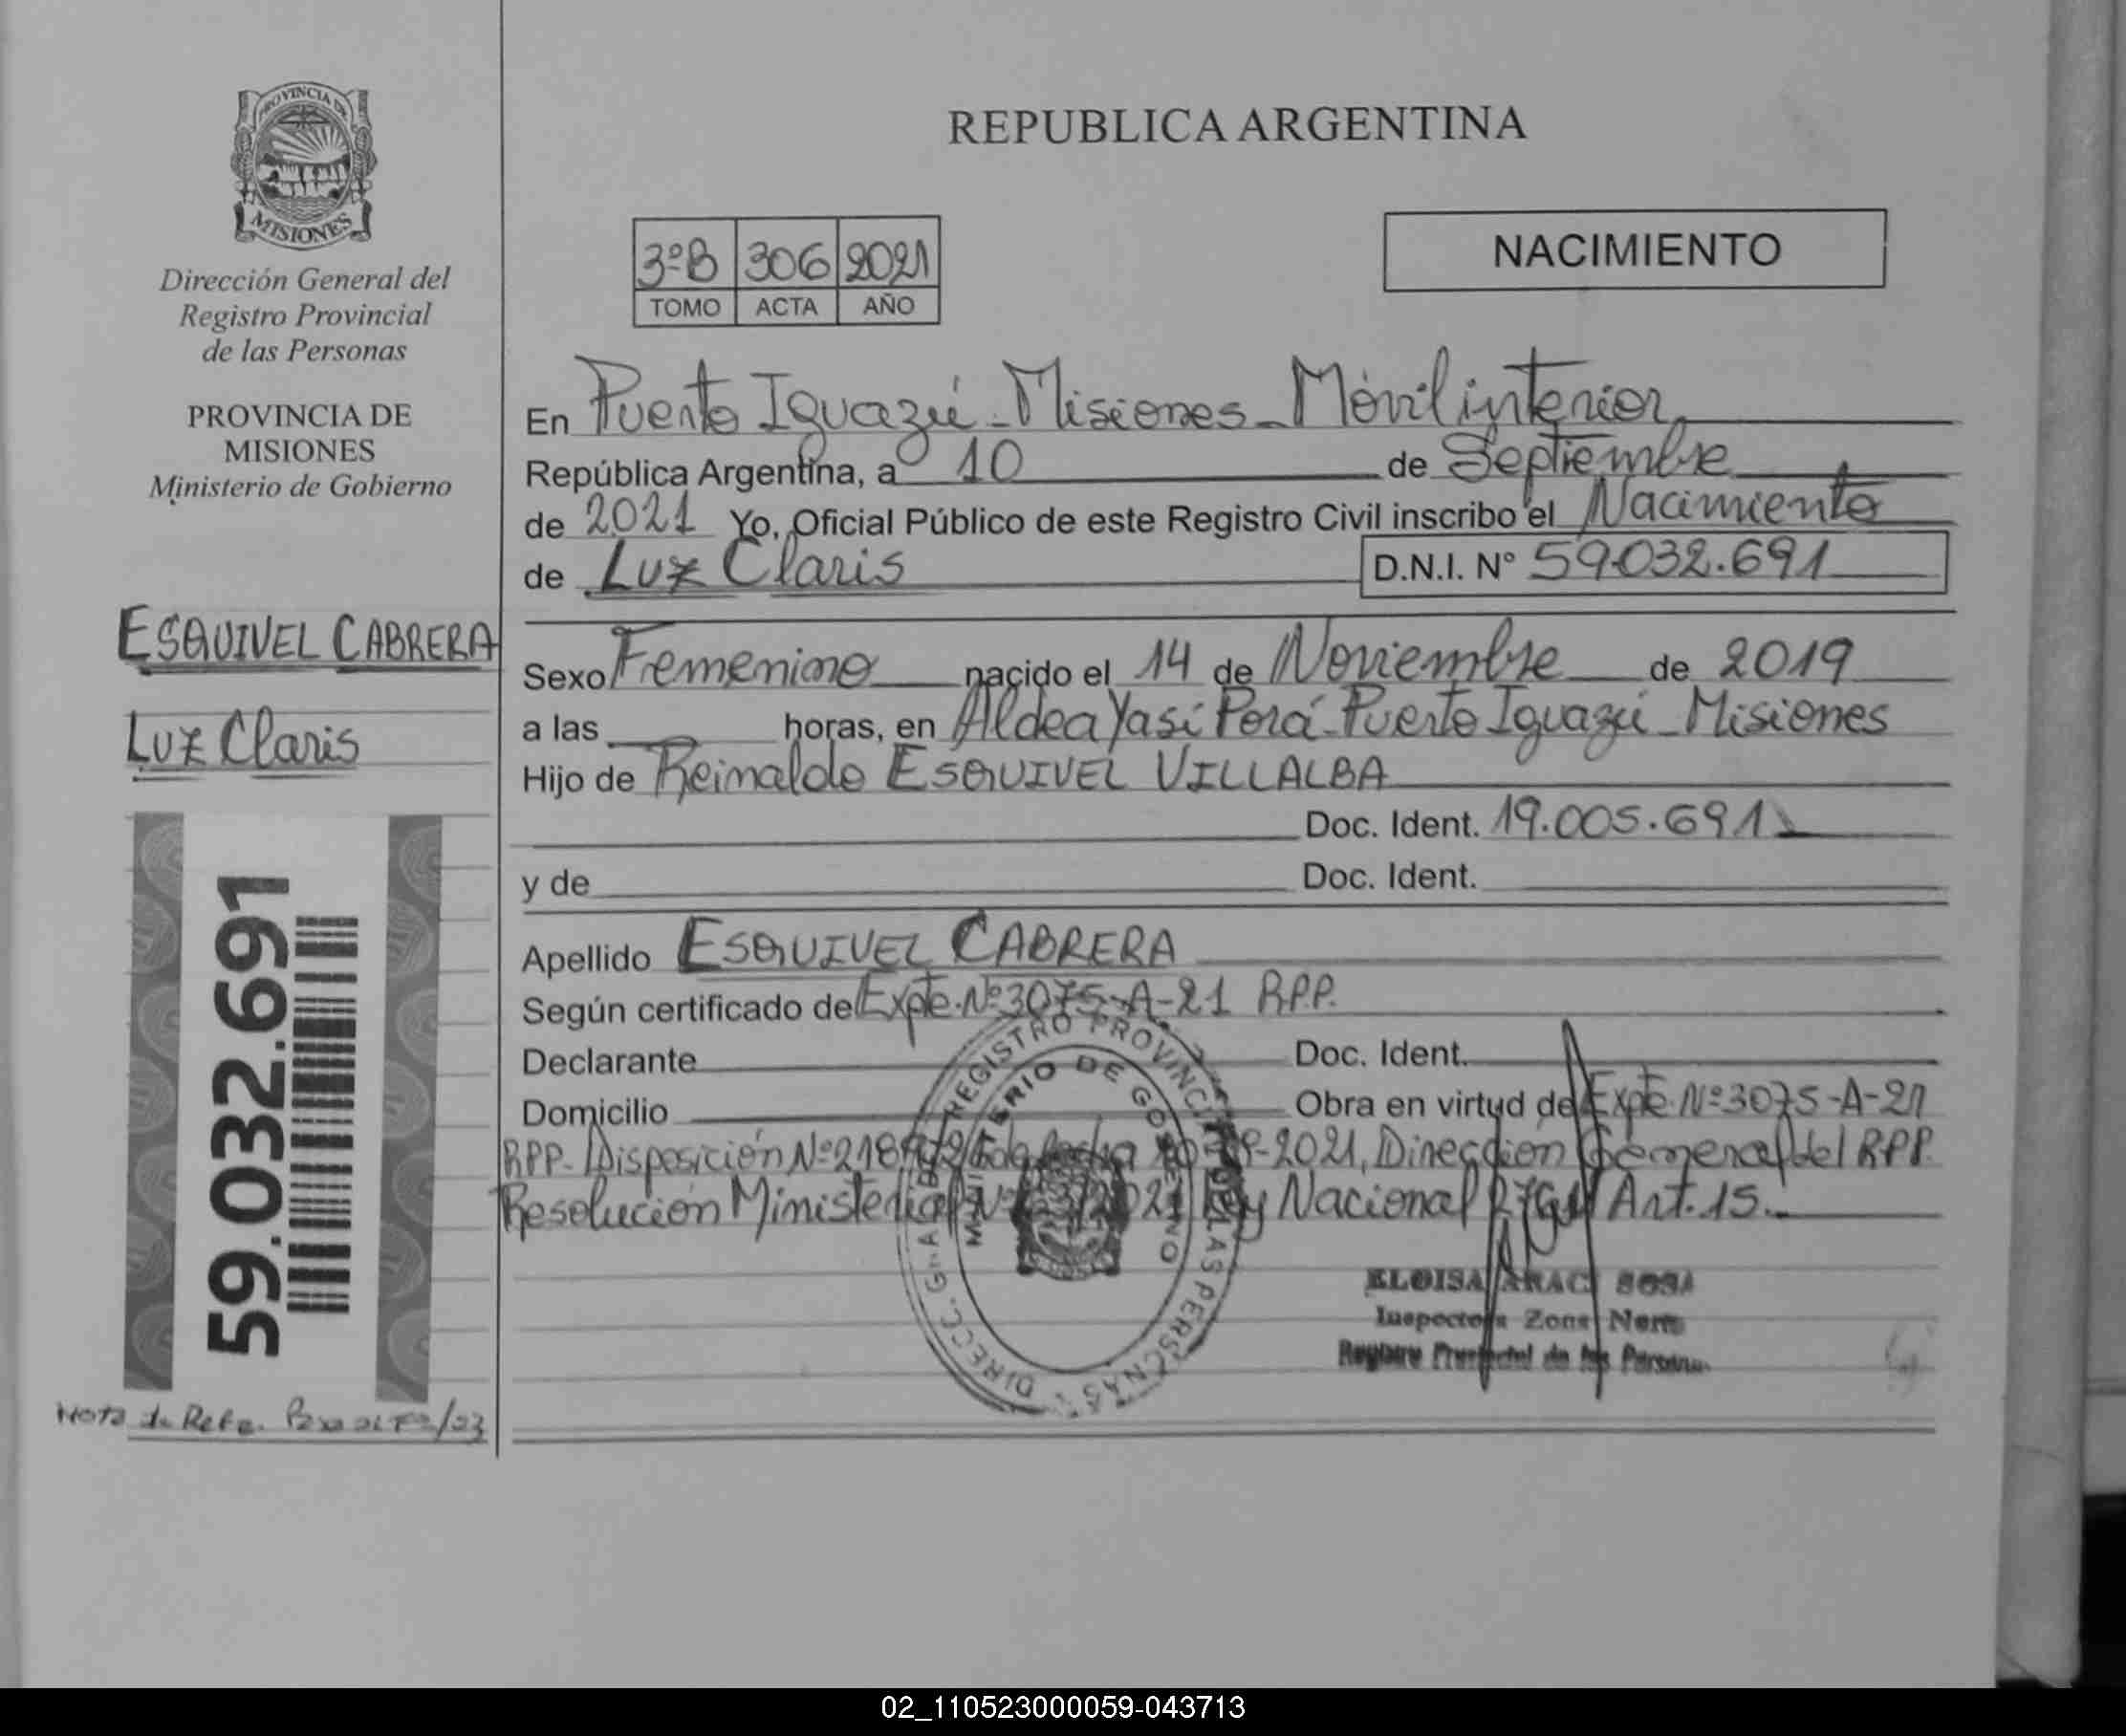 PROVINCIA DE
MISIONES
Dirección General del
Registro Provincial
de las Personas
PROVINCIA DE
MISIONES
Ministerio de Gobierno
ESQUIVEL CABRERA
Luz Claris
59.032.691
Nota de Refe.
REPUBLICA ARGENTINA
3ºB 306 2021
TOMO ACTA AÑO
NACIMIENTO
En Puerto Iguazú - Misiones - Móvil interior
República Argentina, a 10 de Septiembre
de 2021 Yo, Oficial Público de este Registro Civil inscribo el Nacimiento
de Luz Claris D.N.I. Nº 59.032.691
Sexo Femenino nacido el 14 de Noviembre de 2019
a las horas, en Aldea Yasí Porá - Puerto Iguazú - Misiones
Hijo de Reinaldo ESQUIVEL VILLALBA
Doc. Ident. 19.005.691
y de Doc. Ident.
Apellido ESQUIVEL CABRERA
Según certificado de Expte. Nº 3075-A-21 R.P.P.
Declarante Doc. Ident.
Domicilio Obra en virtud de Expte. Nº 3075-A-21
RPP - Disposición Nº de fecha 2021, Dirección General del RPP.
Resolución Ministerial Nº 2021 Ley Nacional Art. 15.
DIRECC. GRAL. REGISTRO PROVINCIAL DE LAS PERSONAS
MINISTERIO DE GOBIERNO
ELOISA ARACI SOSA
Inspectora Zona Norte
Registro Provincial de las Personas
02_110523000059-043713